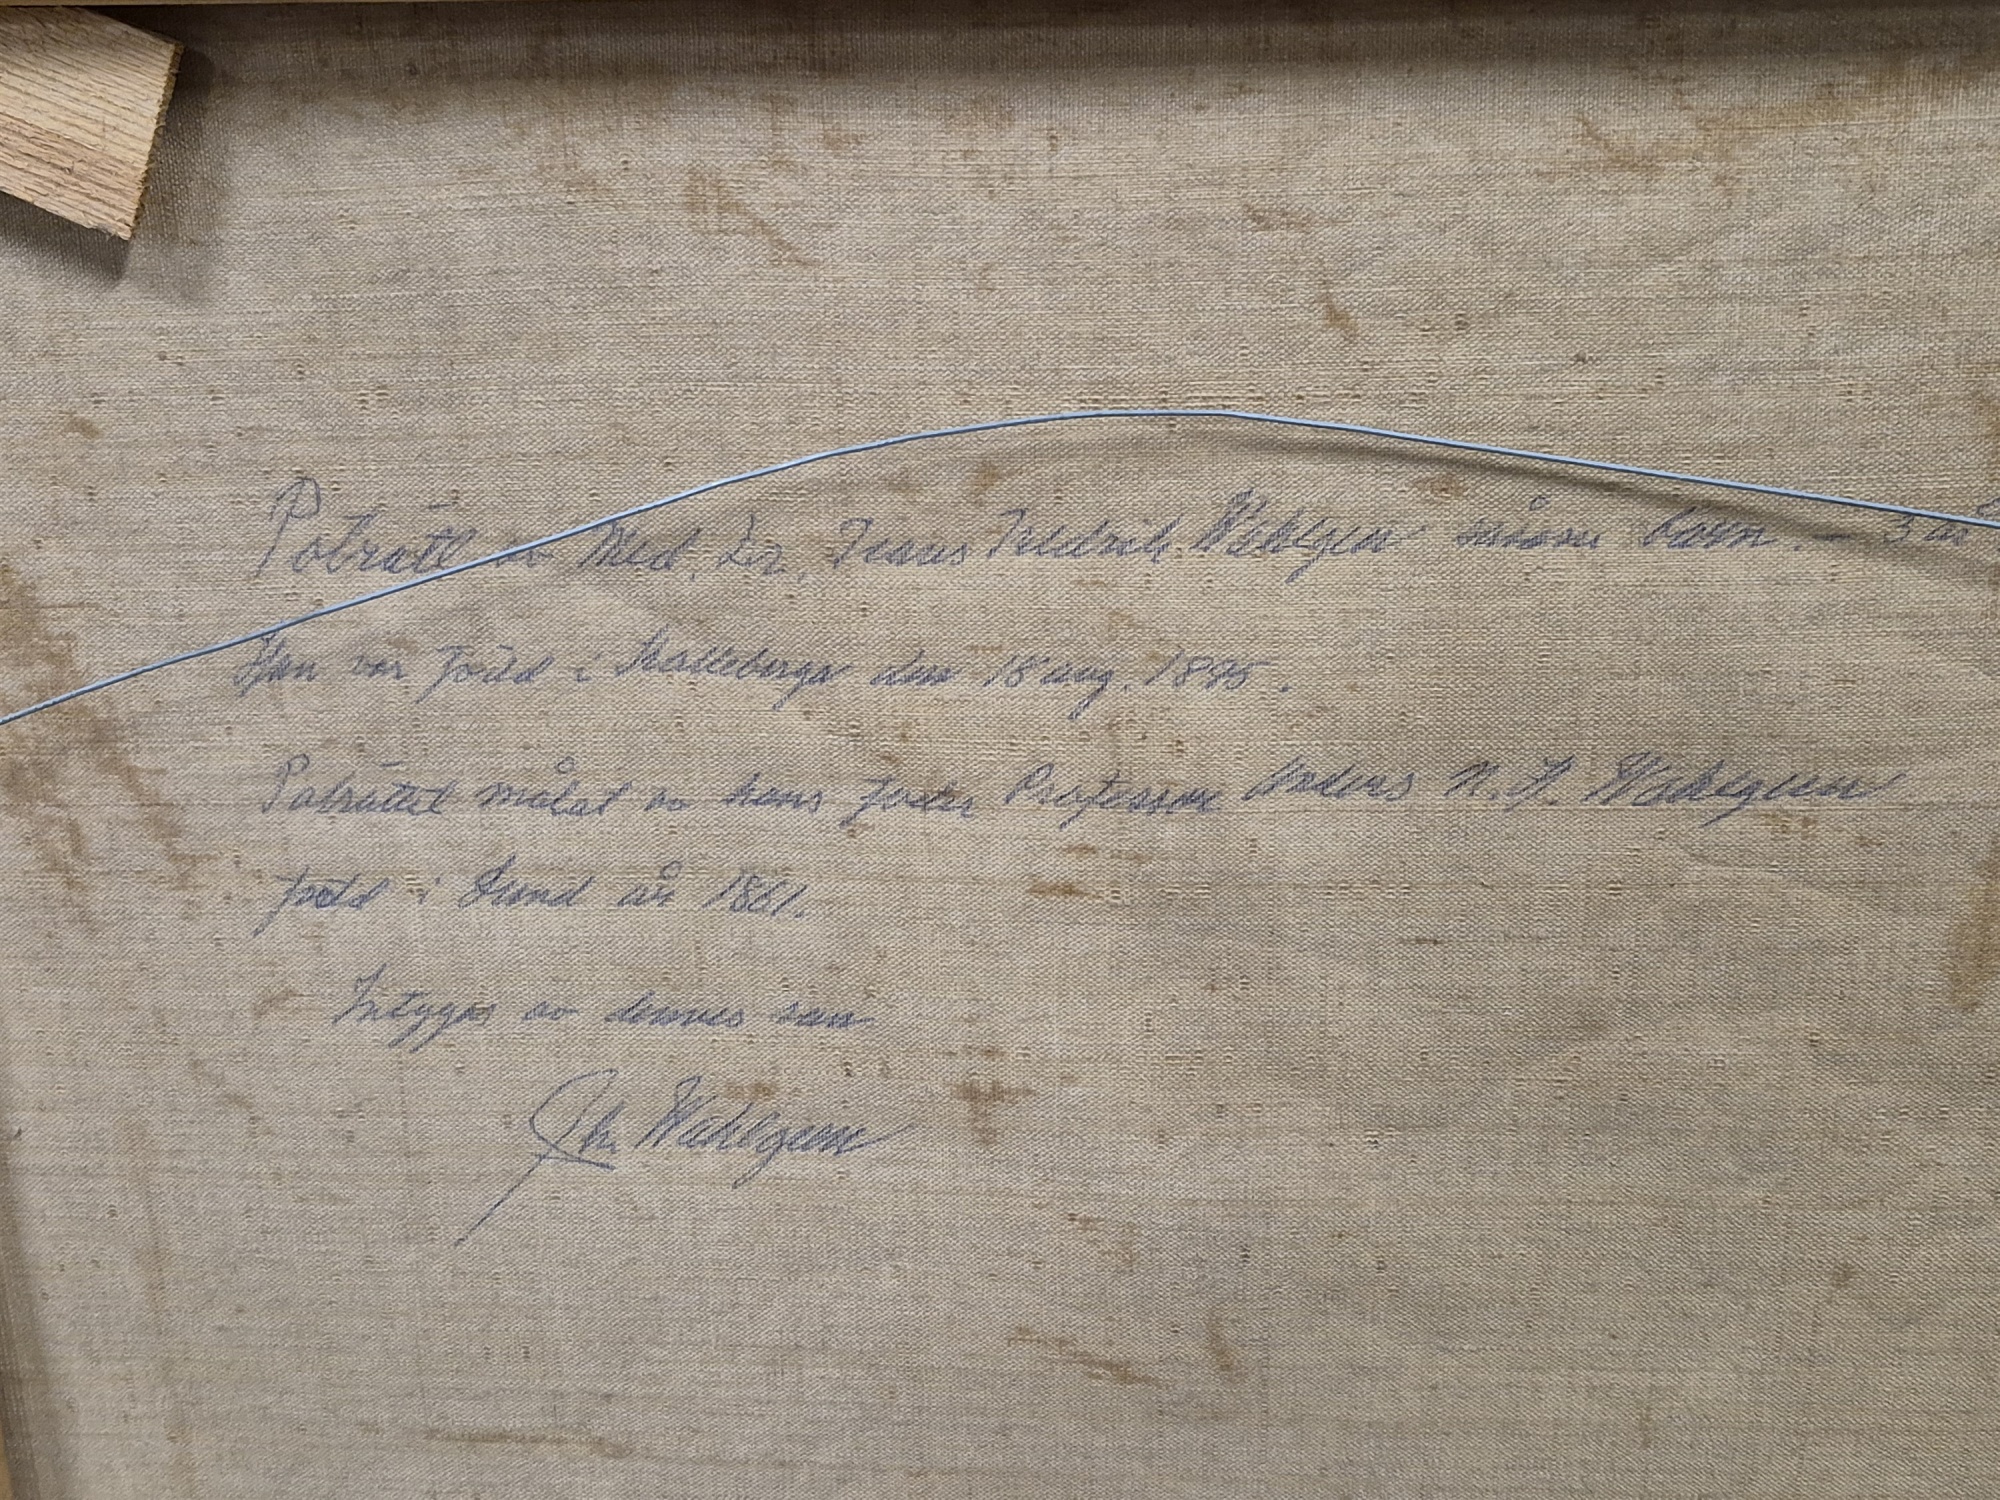 Poträtt av Med. Dr. Frans Fredrik Wahlgren såsom barn. – 3 år
Han var född i Malleberga den 18 aug. 1895.
Poträttet målat av hans fader Professor Anders N. F. Wahlgren
född i Lund år 1861.
Intygas av dennes son
Wahlgren